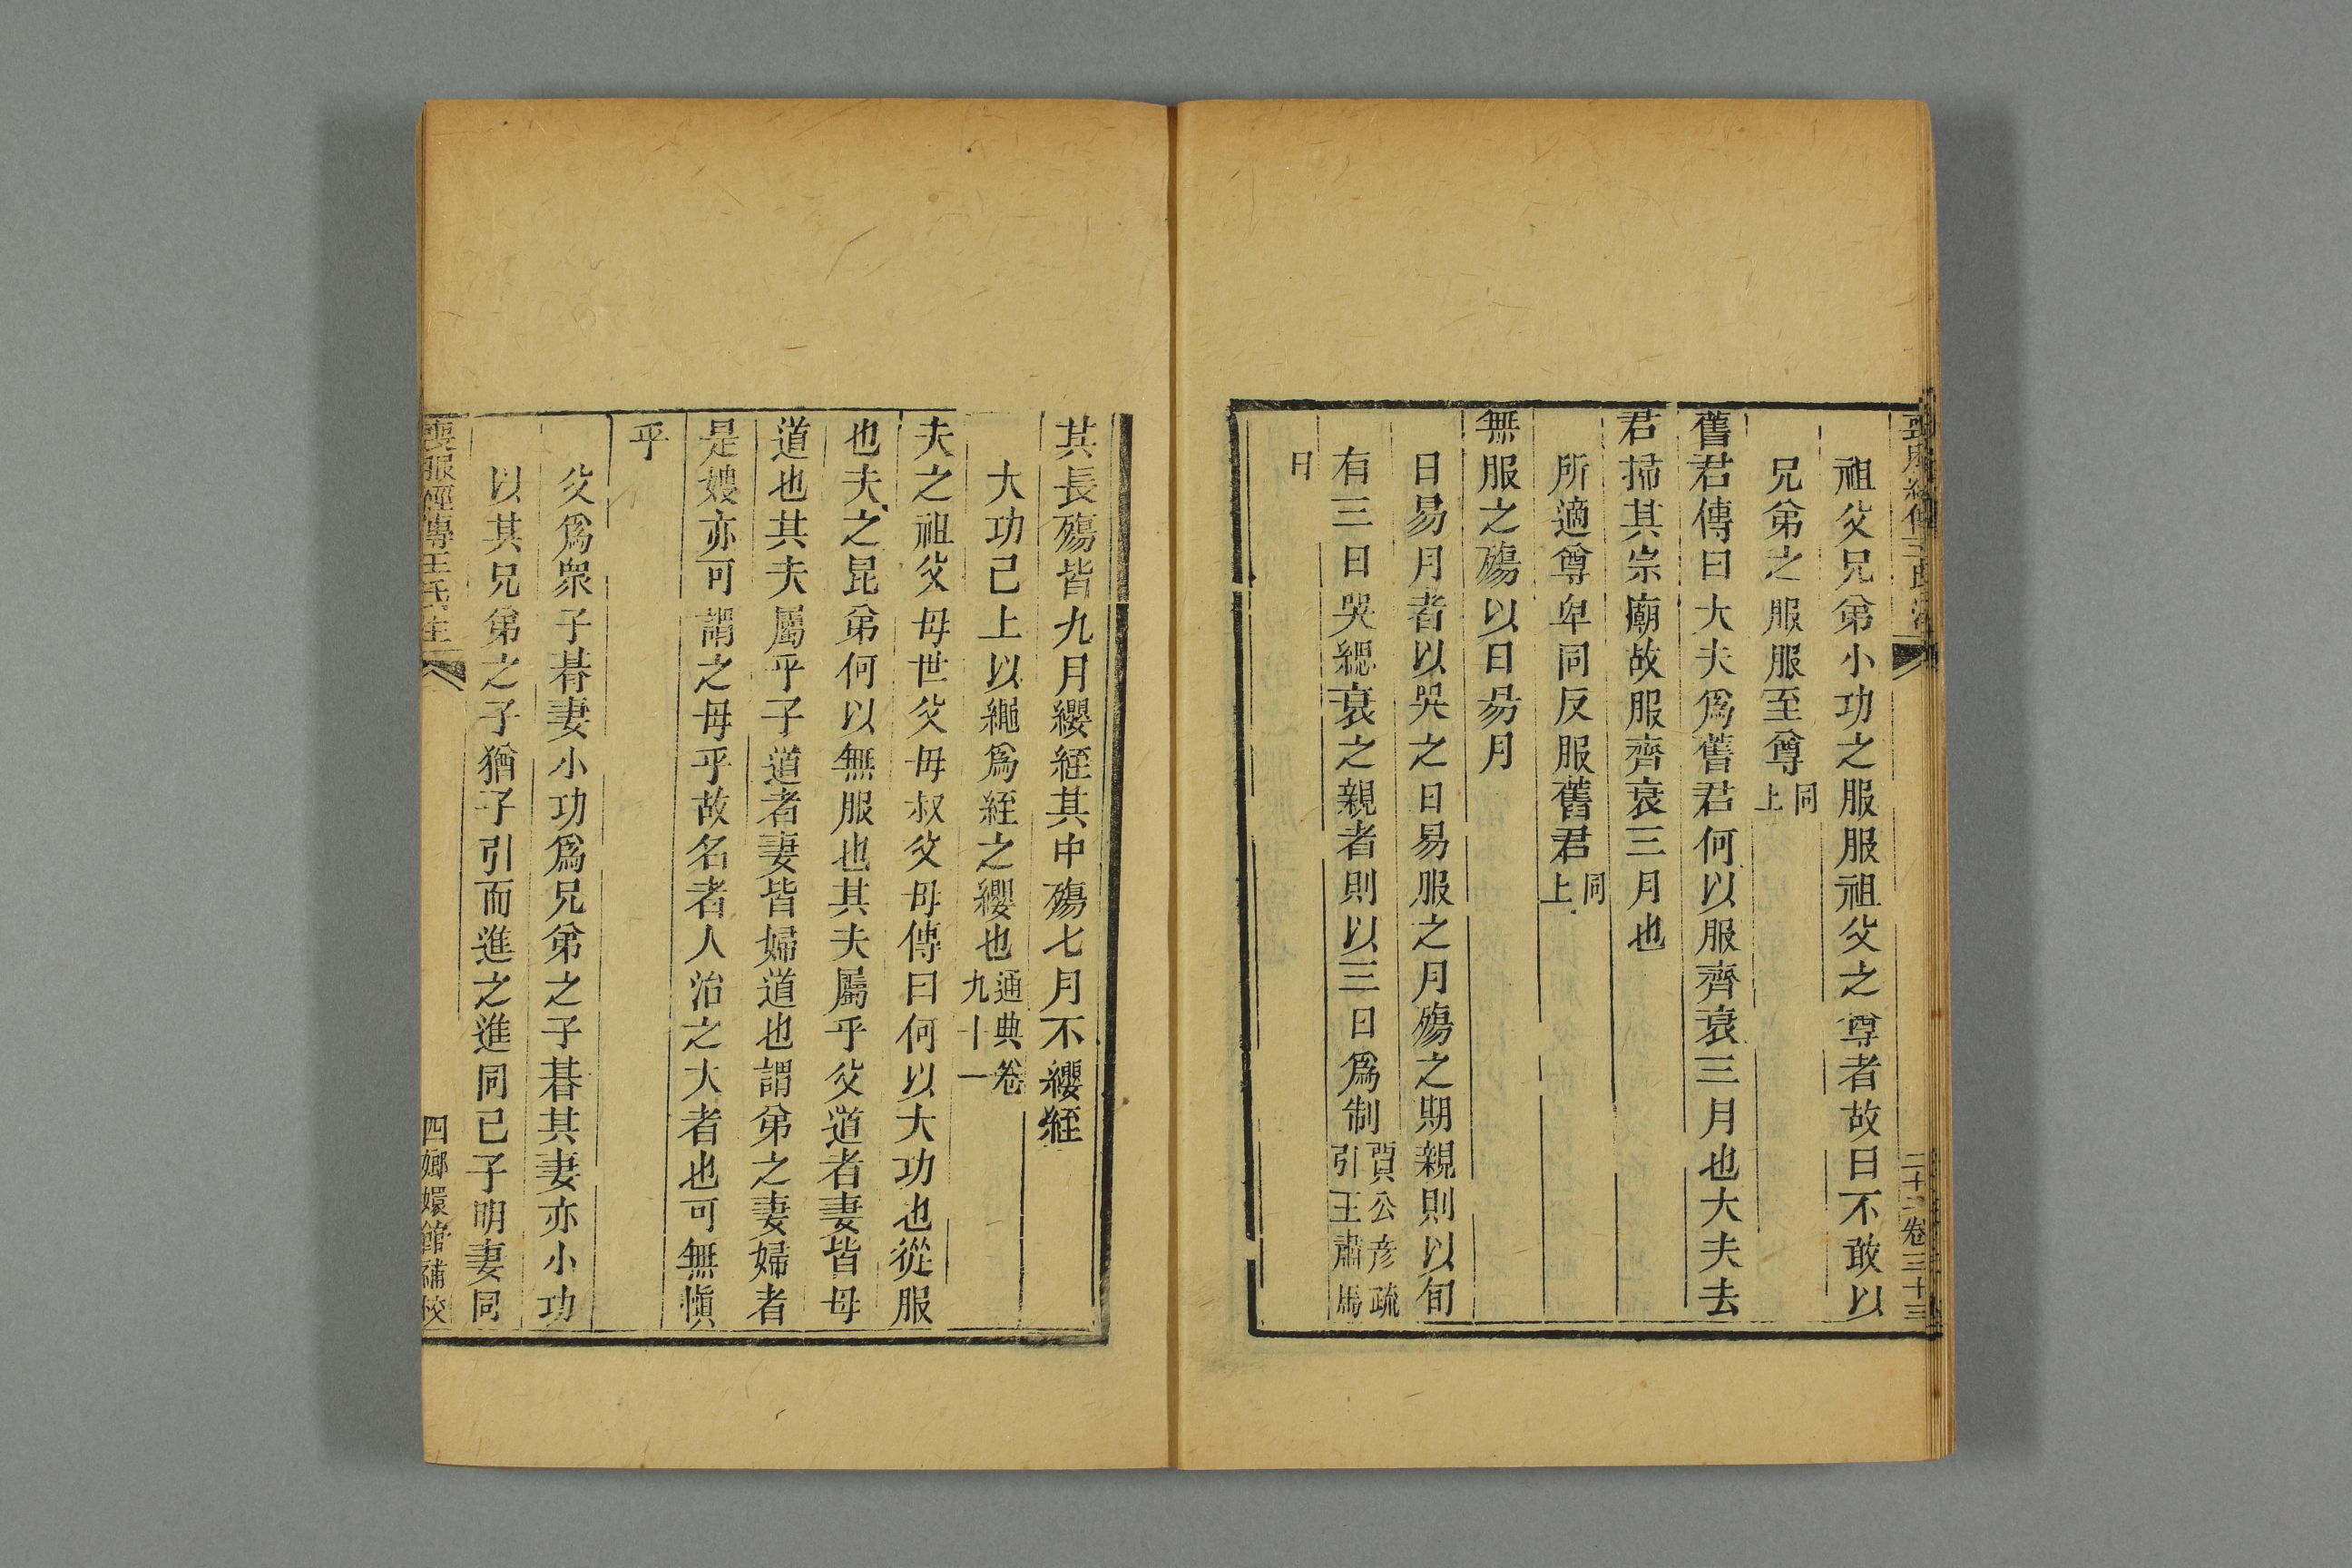 祖父兄弟小功之服服祖父之尊者故曰不敢以
兄弟之服服至尊同上
舊君傳曰大夫爲舊君何以服齊衰三月也大夫去
君掃其宗廟故服齊衰三月也
所適尊卑同反服舊君同上
無服之殤以日易月
日易月者以哭之日易服之月殤之期親則以旬
有三日哭緦衰之親者則以三日爲制賈公彦疏引王肅馬
曰
其長殤皆九月纓絰其中殤七月不纓絰
大功己上以繩爲絰之纓也通典卷九十一
夫之祖父母世父母叔父母傳曰何以大功也從服
也夫之昆弟何以無服也其夫屬乎父道者妻皆母
道也其夫屬乎子道者妻皆婦道也謂弟之妻婦者
是嫂亦可謂之母乎故名者人治之大者也可無愼
乎
父爲衆子朞妻小功爲兄弟之子朞其妻亦小功
以其兄弟之子猶子引而進之進同己子明妻同
喪服經傳王氏注
四
嫏嬛館補校